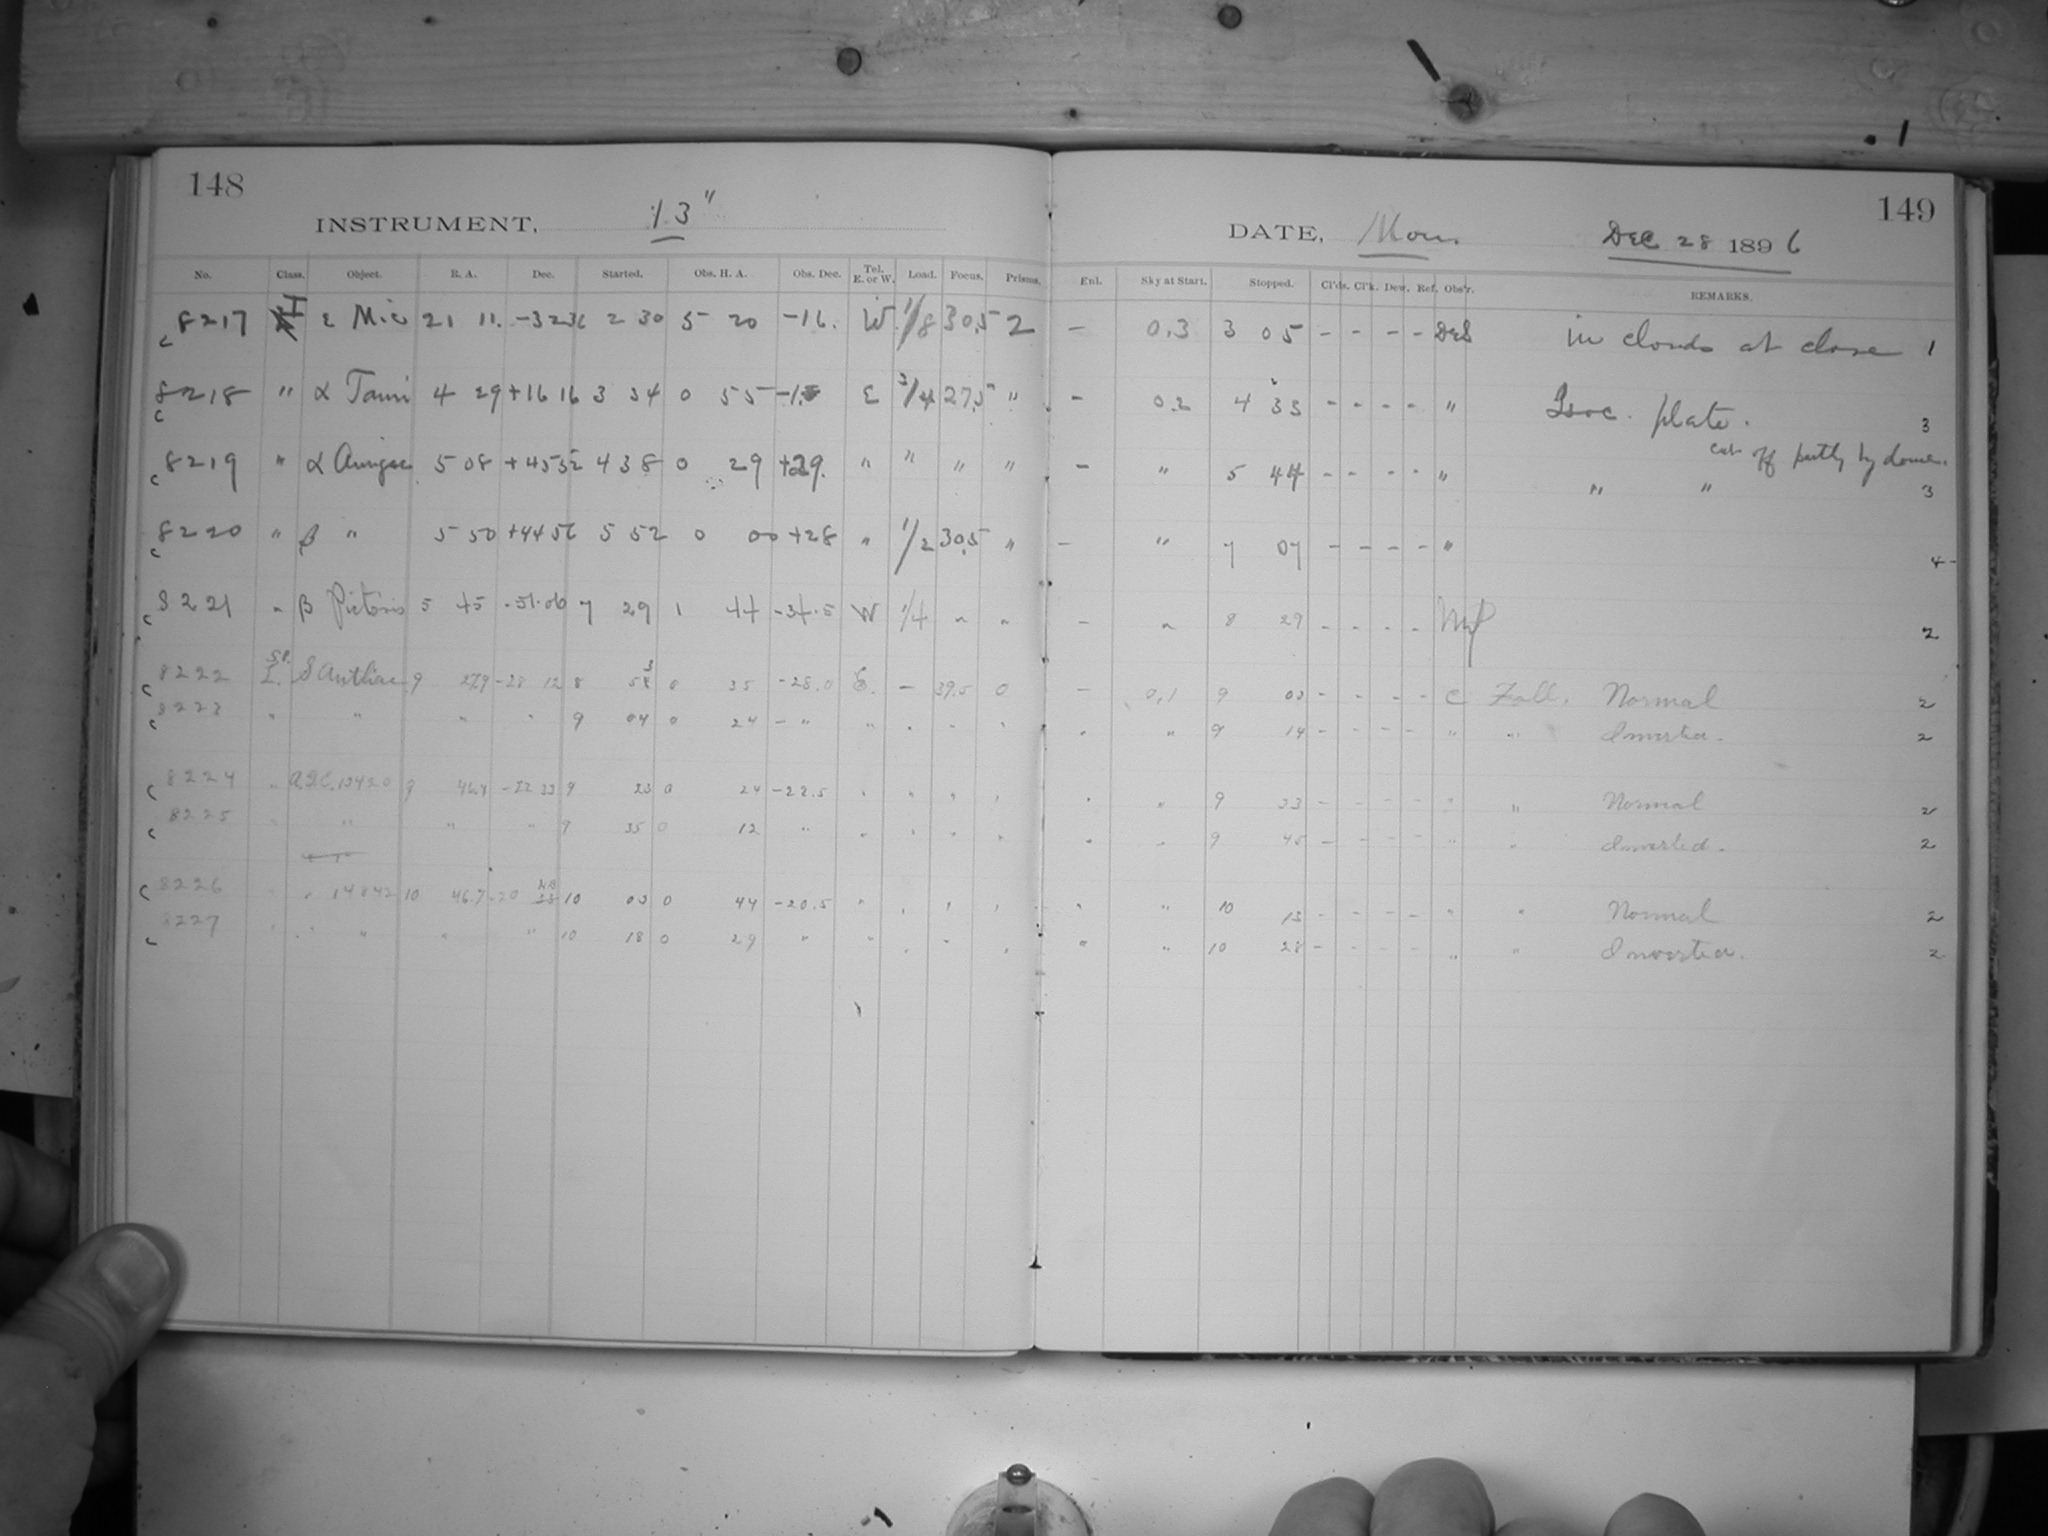 148
149
INSTRUMENT, 13"
DATE, Mon. Dec 28 1896
No. Class. Object. R. A. Dec. Started. Obs. H. A. Obs. Dec. Tel. E. or W. Load. Focus. Prisms. Enl. Sky at Start. Stopped. Cl'ds. Cl'k. Dew. Ref. Obs'r. REMARKS.
c 8217 ε Mic 21 11. -32 36 2 30 5 20 -16. W 1/8 30.5 2 - 0.3 3 05 - - - - DeS in clouds at close 1
c 8218 " α Tauri 4 29 +16 16 3 34 0 55 E 3/4 27.5 " - 0.2 4 33 - - - - " Isoc. plate. 3
cut off partly by dome.
c 8219 " α Aurigae 5 08 +45 52 4 38 0 29 +29. " " " " - " 5 44 - - - - " " " 3
c 8220 " β " 5 50 +44 56 5 52 0 00 +28 " 1/2 30.5 " - " 7 07 - - - - " 4
c 8221 " β Pictoris 5 45 -51.06 7 29 1 44 -34.5 W 1/4 " " - " 8 29 - - - - 2
c 8222 Sp. I. S Antliae 9 27.9 -28 12 8 53 0 35 -28.0 E. - 39.5 0 - 0.1 9 03 - - - - C Fall. Normal 2
c 8223 " " " " 9 04 0 24 - " " " - " " " 9 14 - - - - " " Inverted. 2
c 8224 " A.G.C. 13420 9 46.4 -22 33 9 23 0 24 -22.5 " " " " " " 9 33 - - - - " " Normal 2
c 8225 " " " " 9 35 0 12 " " " " " " " 9 45 - - - - " " Inverted. 2
c 8226 " " 14842 10 46.7 -20 10 03 0 44 -20.5 " " " " " " 10 13 - - - - " " Normal 2
c 8227 " " " " " 10 18 0 29 " " " " " " " 10 28 - - - - " " Inverted. 2